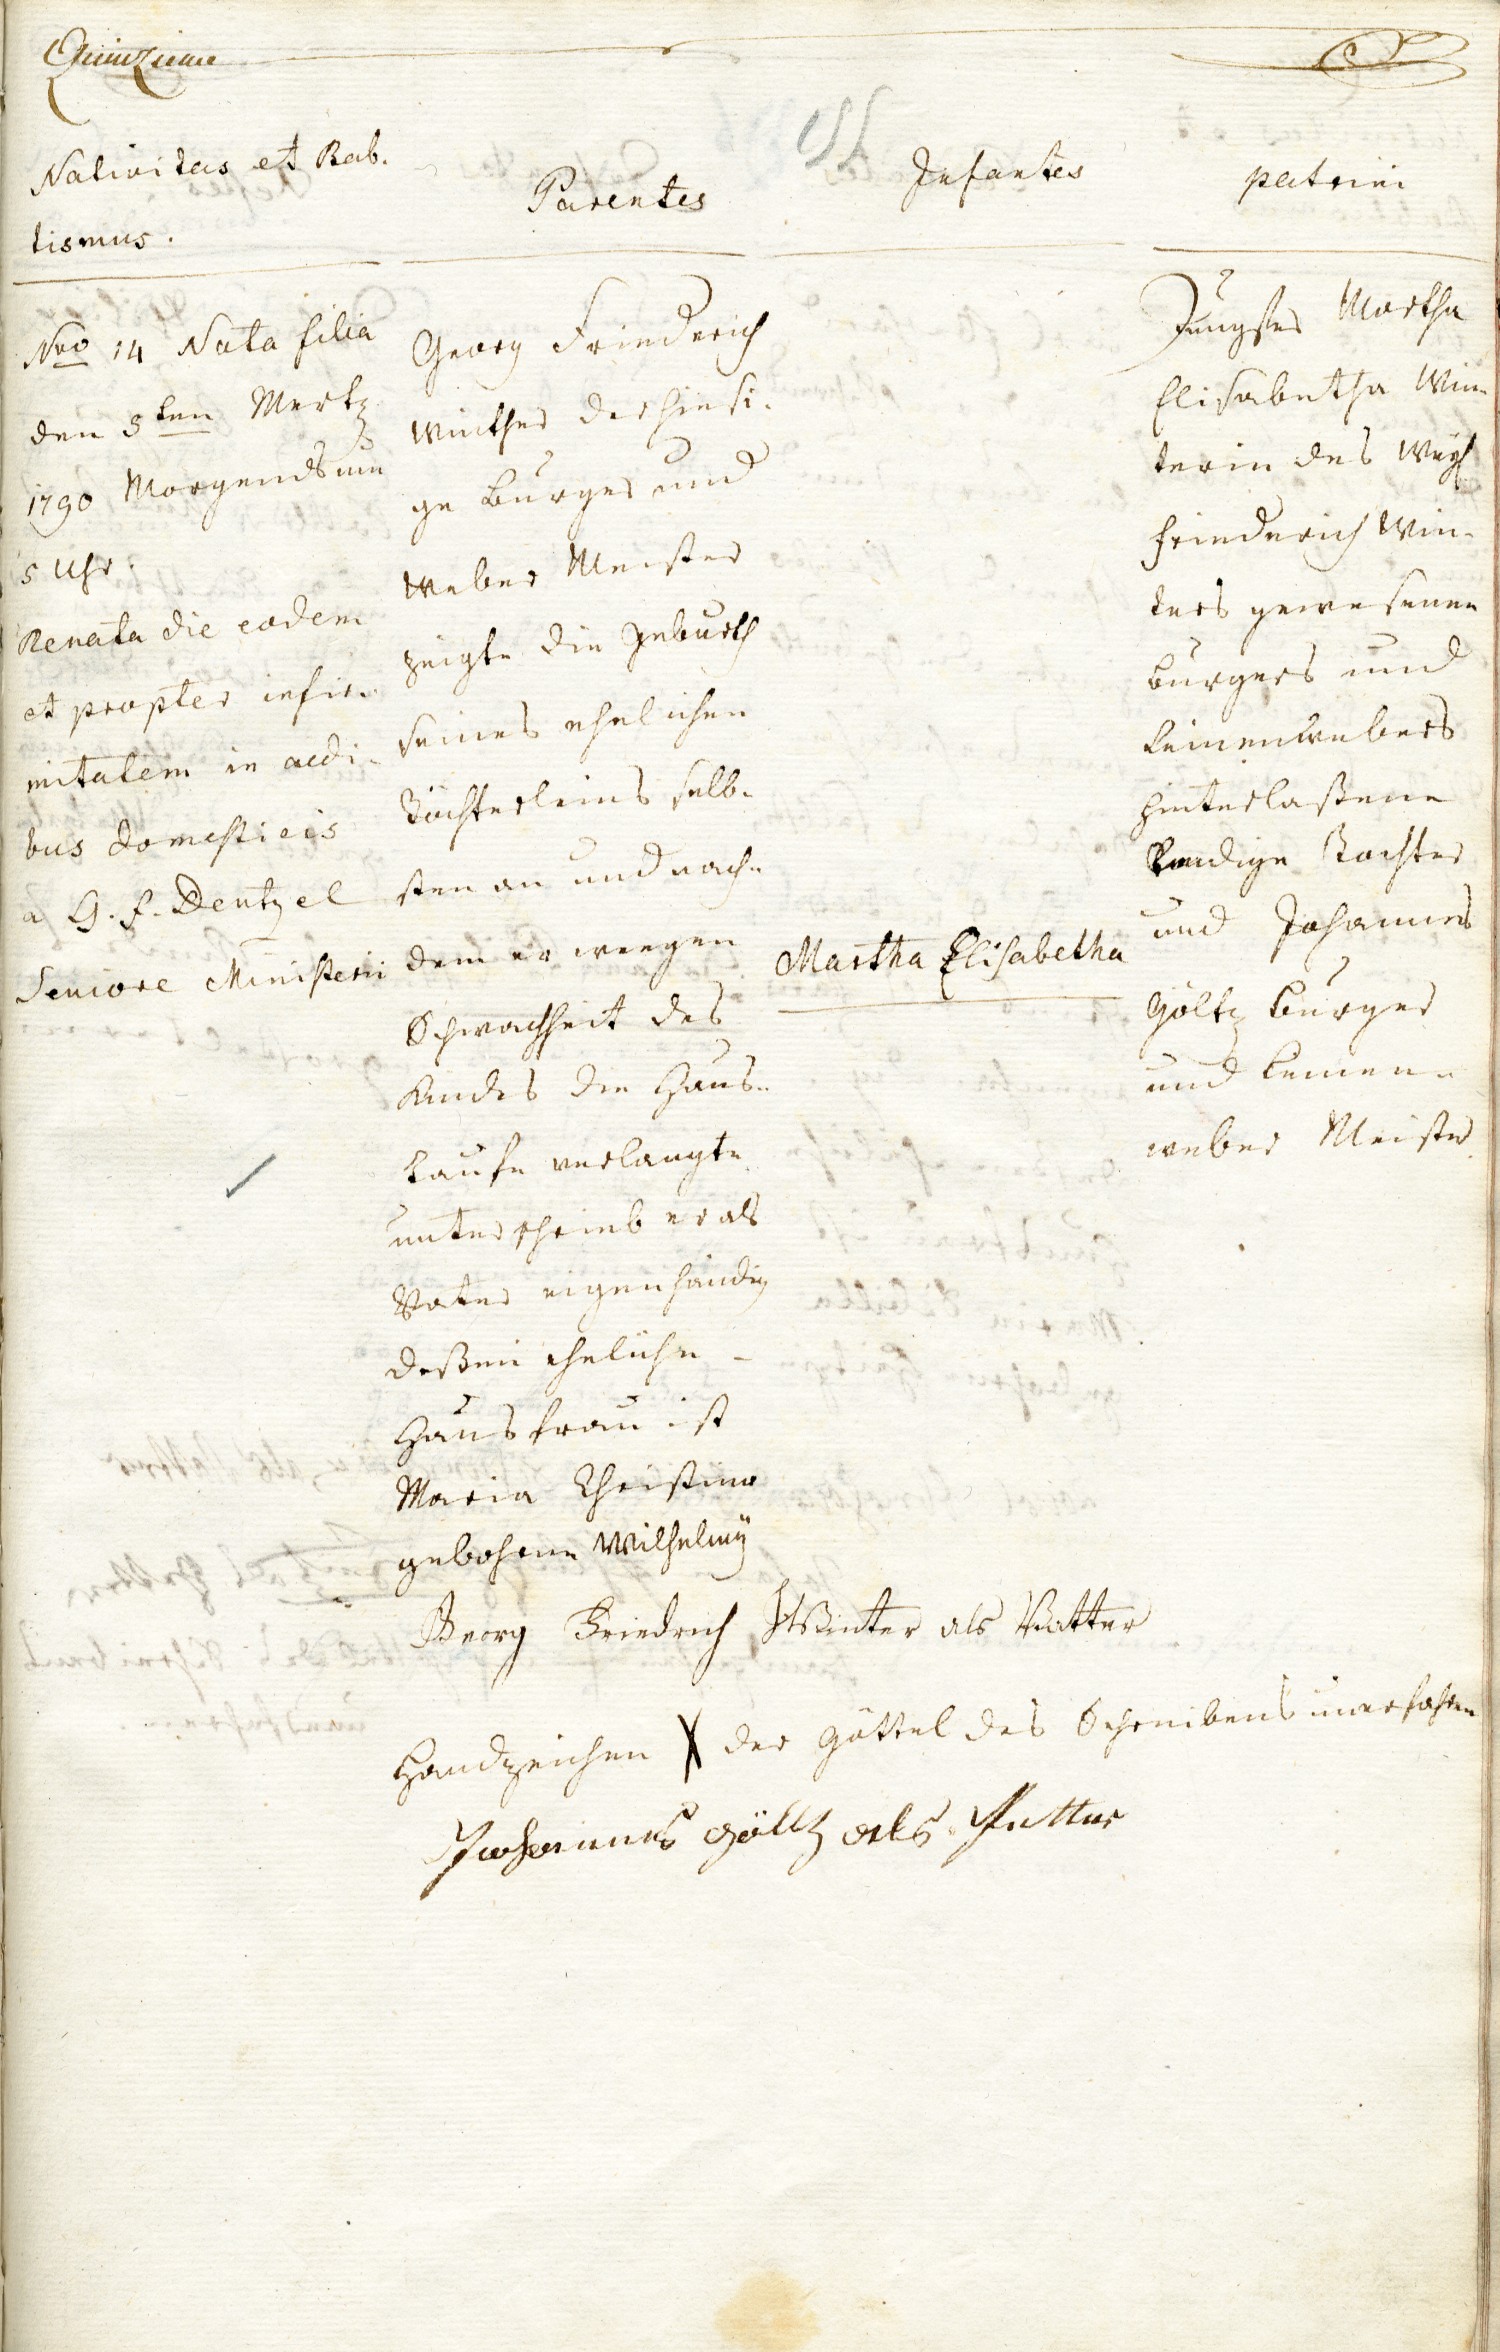 Quinzieme
Nativitas et Bab-
tismus.
Parentes
Infantes
patrini
Nro 14 Nata filia
den 5ten Mertz
1790 Morgends um
5 Uhr.
Renata die eodem
et propter infir-
mitatem in aedi-
bus domesticis
a G. F. Dentzel
Seniore Ministerii
Georg Friederich
Winther der hiesi-
ge Burger und
Weber Meister
zeigte die Geburth
seines ehelichen
Töchterleins selb-
sten an und nach-
dem er weegen
Schwachheit des
Kindes die Haus-
taufe verlangte
unterschrieb er als
Vater eigenhändig
deßen eheliche
Hausfrau ist
Maria Christina
gebohrne Wilhelmÿ
Martha Elisabetha
Jungfer Martha
Elisabetha Win-
terin des Weyl
Friederich Win-
ters gewesenen
Burgers und
Leinenwebers
hinterlaßene
Leedige Tochter
und Johannes
Göltz Burger
und Leinen-
weber Meister
Georg Friedrich Winter als Vatter
Handzeichen X der Göttel des Schreibens unerfahren
Johannes Göltz als Petter